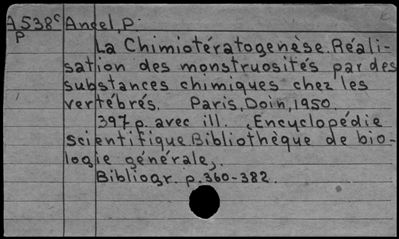 A538c Ancel, P.
p La Chimiotératogenèse. Réali-
sation des monstruosités par des
substances chimiques chez les
vertébrés. Paris, Doin, 1950.
397p. avec ill. (Encyclopédie
scientifique. Bibliothèque de bio-
logie générale).
Bibliogr. p. 360-382.